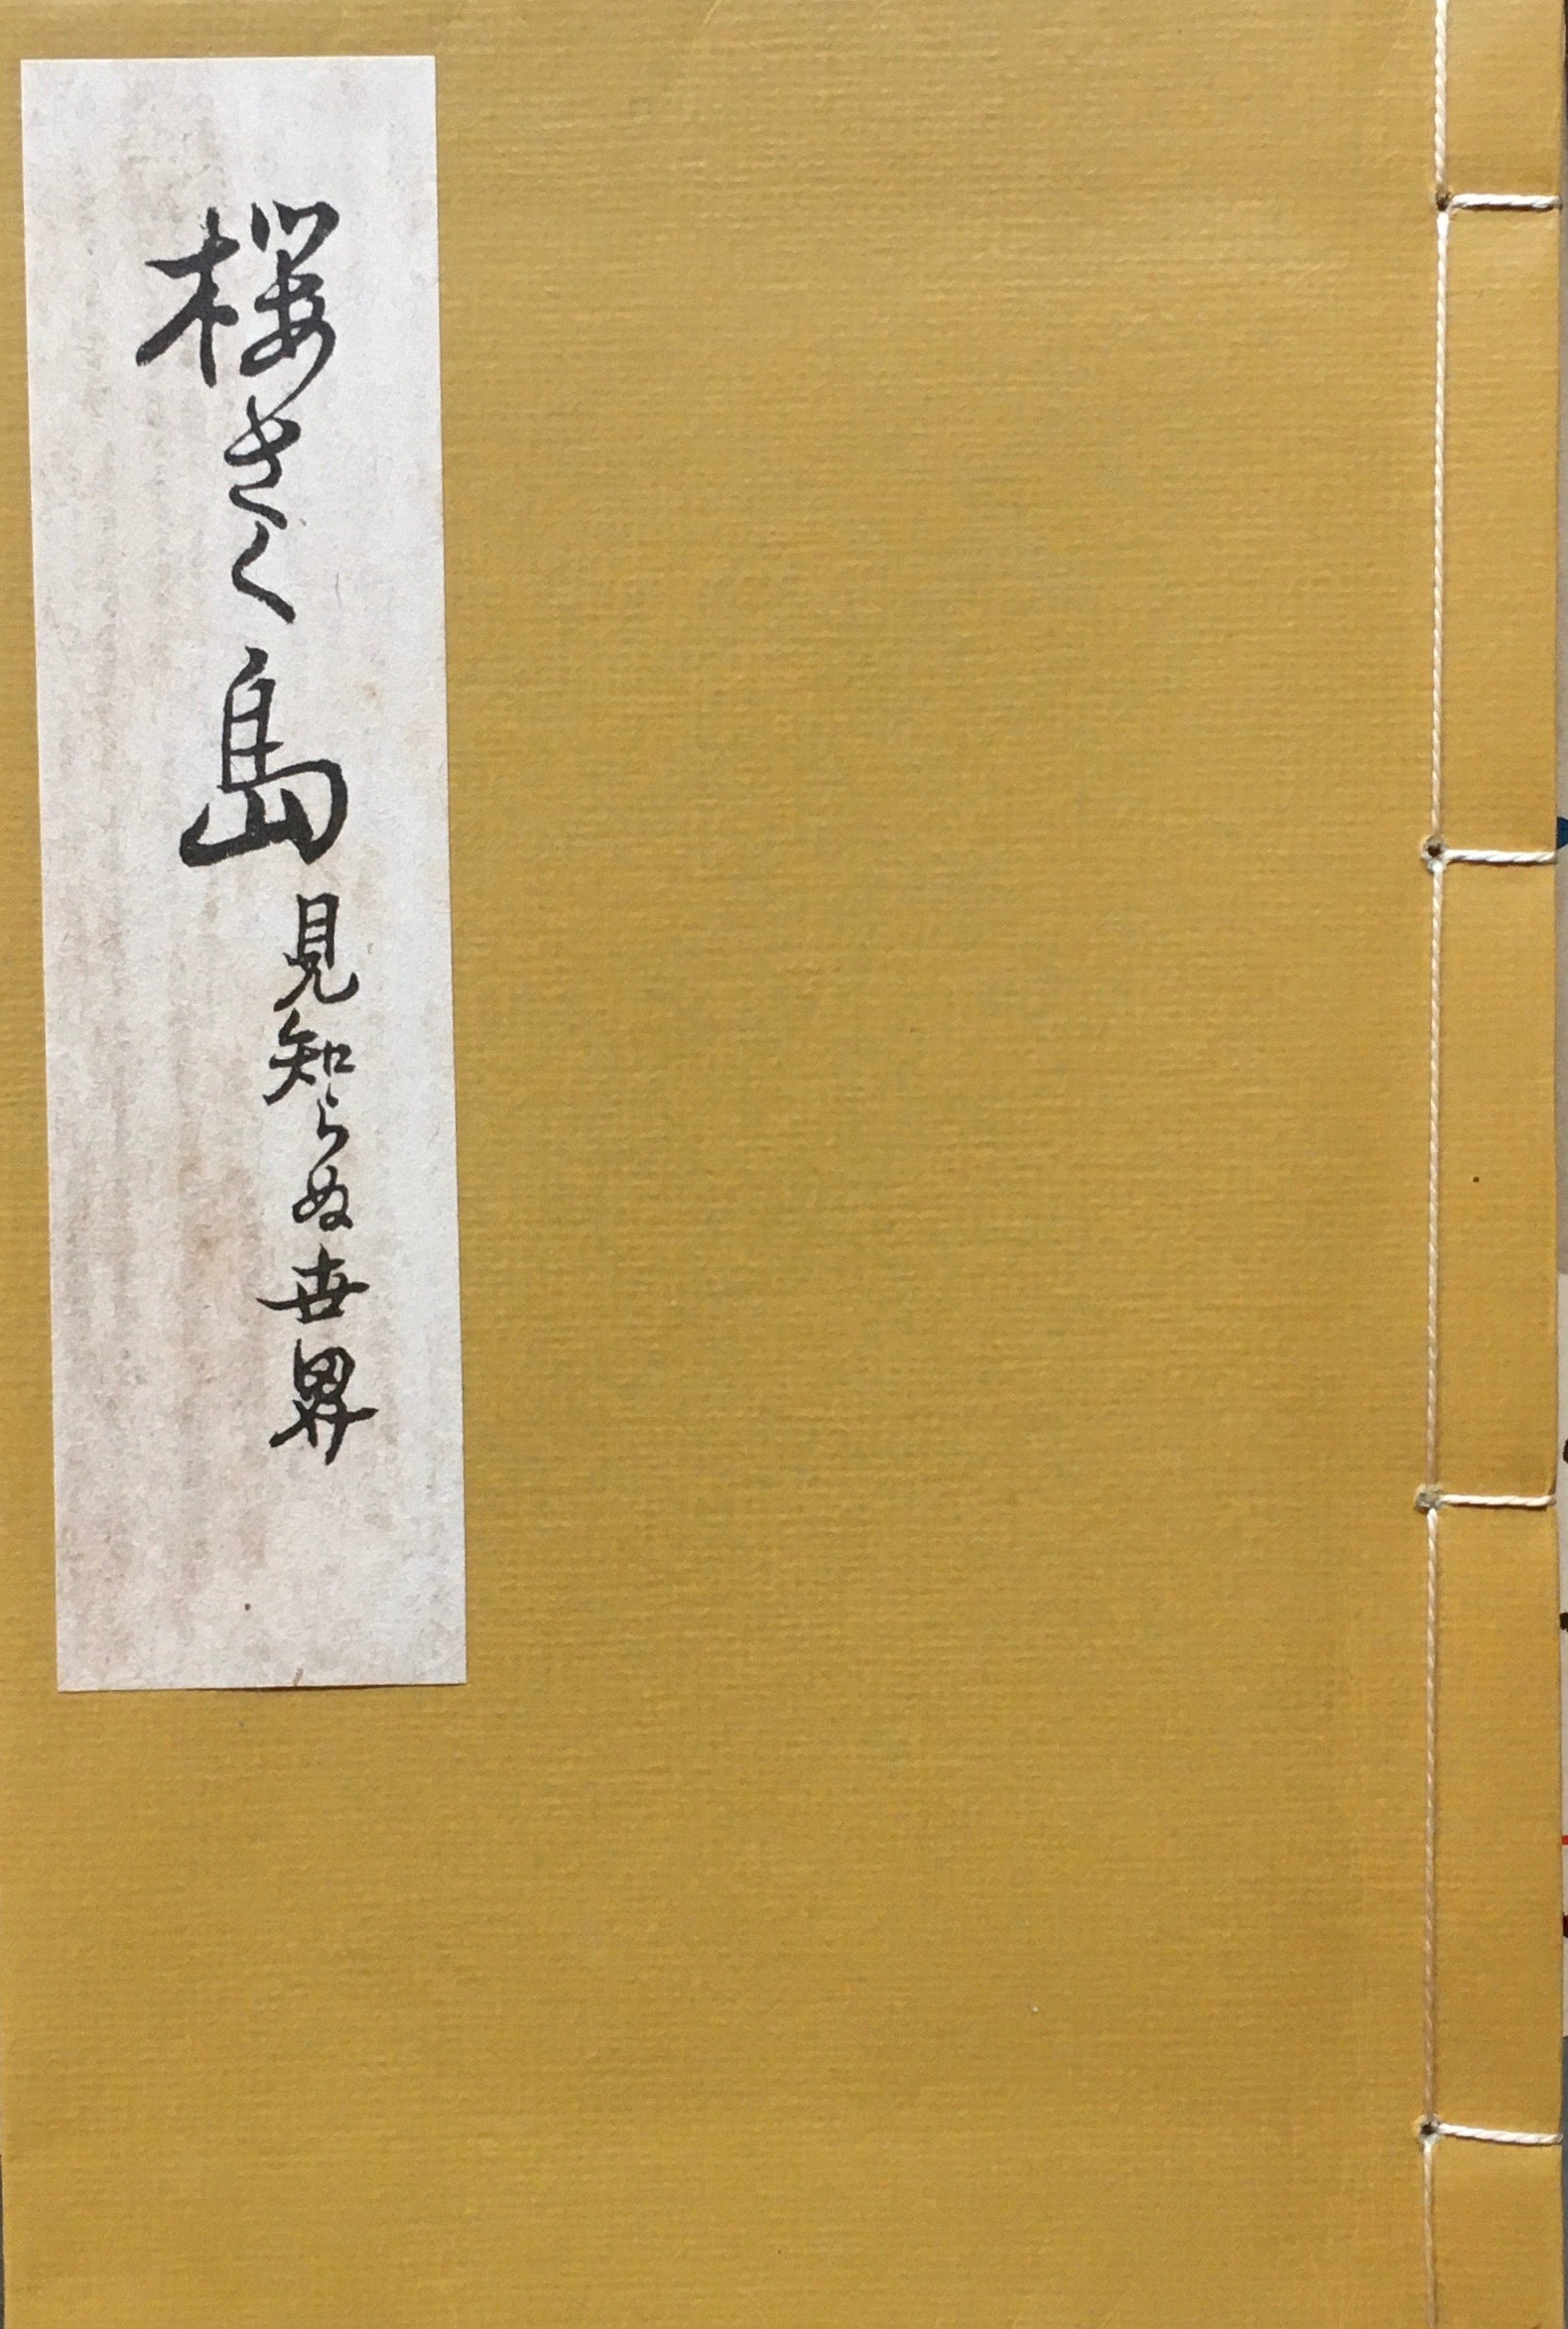 桜さく島見知らぬ世界